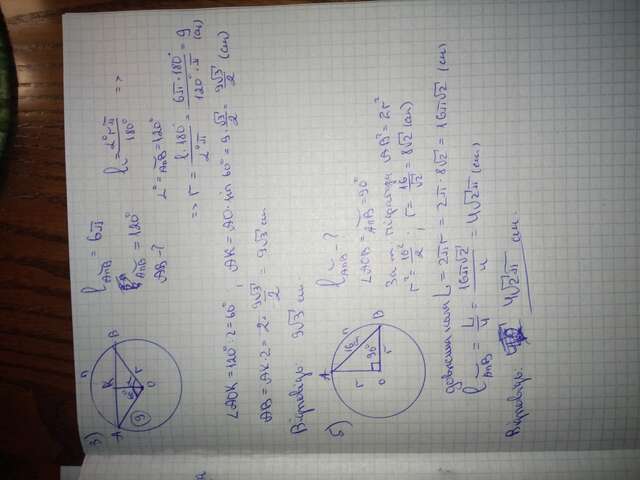 3)
n
A K B
r
60°
O
9
l AnB = 6π
AnB = 120°
AB - ?
l = α° r π / 180° =>
α° = AnB = 120°
=> r = l · 180° / α° π = 6π · 180° / 120° · π = 9 (см)
∠AOK = 120° : 2 = 60° ; AK = AO · sin 60° = 9 · √3/2 = 9√3/2 (см)
AB = AK · 2 = 2 · 9√3/2 = 9√3 см
Відповідь: 9√3 см
5)
n
A 16 B
r 90° r
O
l AnB - ?
∠AOB = AnB = 90°
За т. Піфагора AB² = 2r²
r² = 16²/2 ; r = 16/√2 = 8√2 (см)
довжина кола L = 2πr = 2π · 8√2 = 16π√2 (см)
l AnB = L/4 = 16π√2/4 = 4√2π (см)
Відповідь: 4√2π см.